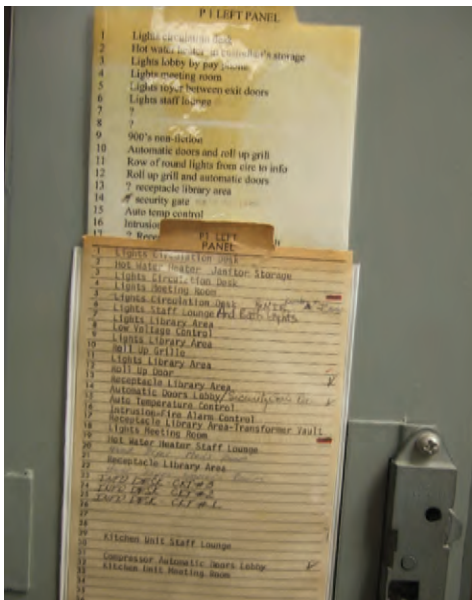 P 1 LEFT PANEL
1 Lights circulation desk
2 Hot water heater in custodian's storage
3 Lights lobby by pay phone
4 Lights meeting room
5 Lights foyer between exit doors
6 Lights staff lounge
7 ?
8 ?
9 900's non-fiction
10 Automatic doors and roll up grill
11 Row of round lights from circ to info
12 Roll up grill and automatic doors
13 ? receptacle library area
14 security gate
15 Auto temp control
16 Intrusion
17 ? Rece
P1 LEFT
PANEL
1 Lights Circulation Desk
2 Hot Water Heater Janitor Storage
3 Lights Circulation Desk
4 Lights Meeting Room
5 Lights Circulation Desk
6 Lights Staff Lounge And Exit Lights
7 Lights Library Area
8 Low Voltage Control
9 Lights Library Area
10 Roll Up Grille
11 Lights Library Area
12 Roll Up Door
13 Receptacle Library Area
14 Automatic Doors Lobby/Security
15 Auto Temperature Control
16 Intrusion-Fire Alarm Control
17 Receptacle Library Area-Transformer Vault
18 Lights Meeting Room
Hot Water Heater Staff Lounge
Receptacle Library Area
INFO DESK - CKT #3
INFO DESK - CKT #2
INFO DESK - CKT #1
Kitchen Unit Staff Lounge
Compressor Automatic Doors Lobby
Kitchen Unit Meeting Room